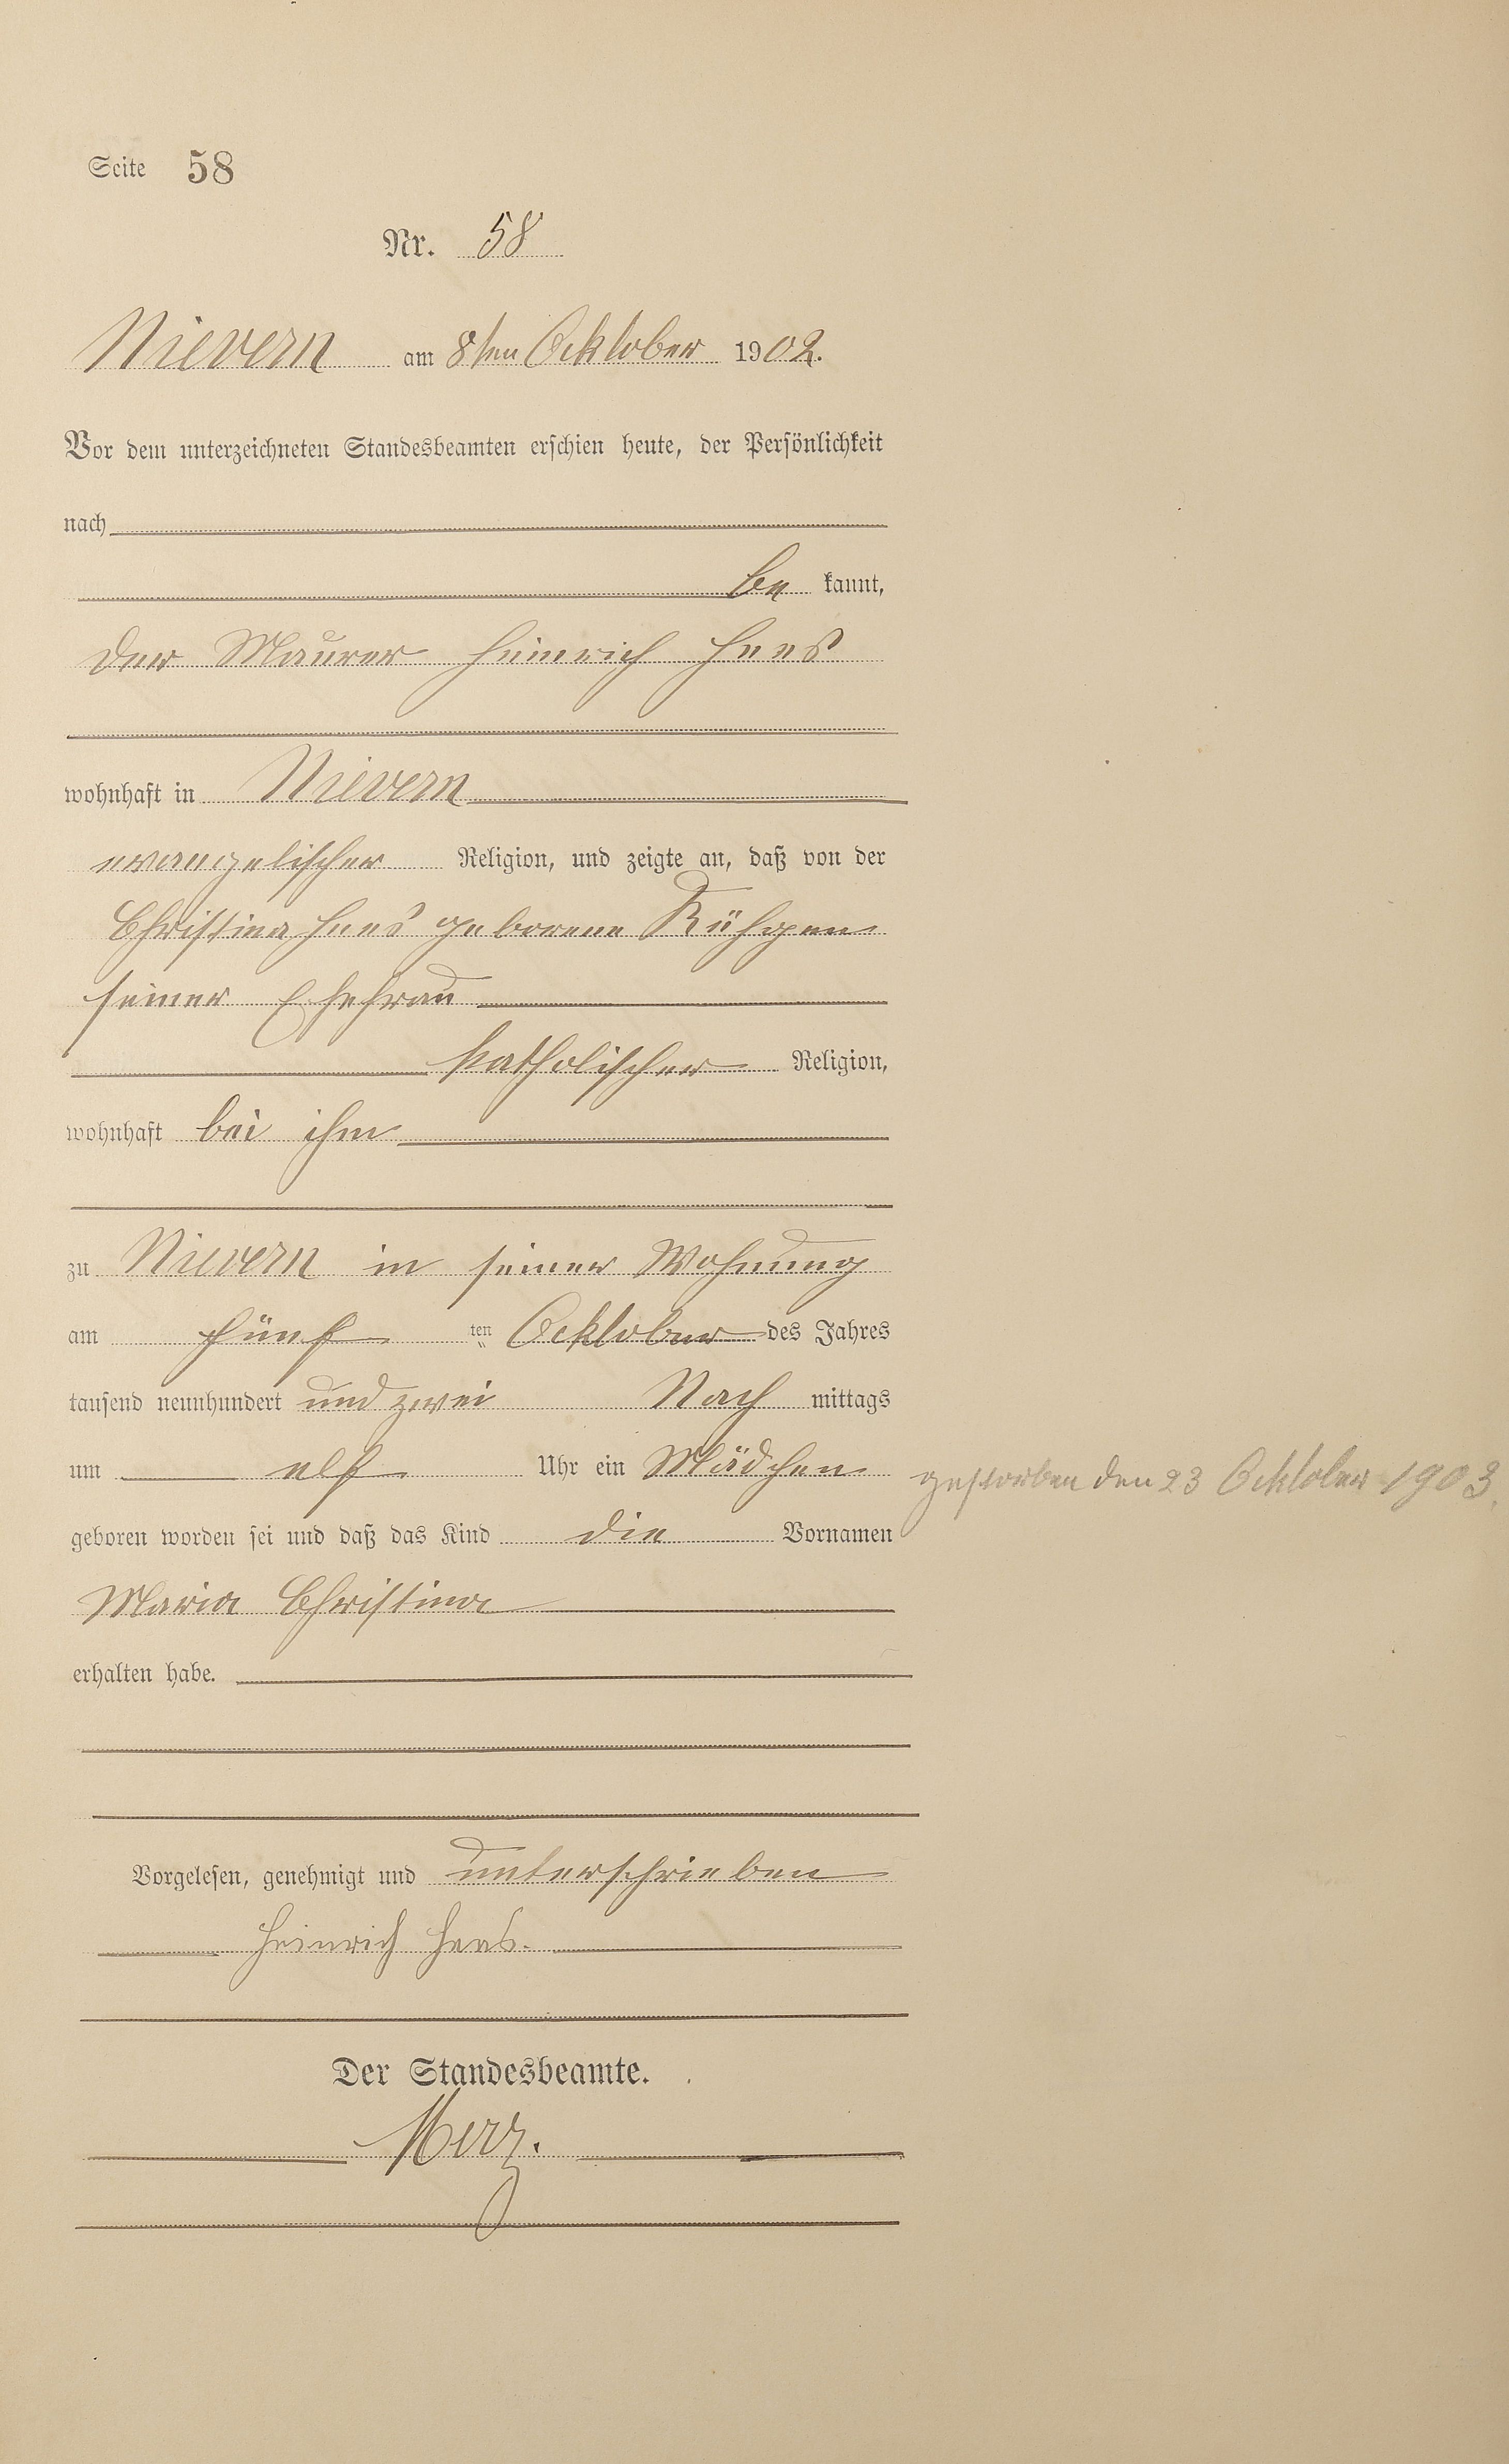 Seite 58
Nr. 58
Nievern am 8ten Ocktober 1902.
Vor dem unterzeichneten Standesbeamten erschien heute, der Persönlichkeit
nach
be kannt,
der Maurer Heinrich Haas
wohnhaft in Nievern
evangelischer Religion, und zeigte an, daß von der
Christina Haas geborene Kühgen
seiner Ehefrau
katholischer Religion,
wohnhaft bei ihm
zu Nievern in seiner Wohnung
am fünf ten Ocktober des Jahres
tausend neunhundert und zwei Nach mittags
um elf Uhr ein Mädchen
gestorben den 23 Ocktober 1903.
geboren worden sei und daß das Kind die Vornamen
Maria Christina
erhalten habe.
Vorgelesen, genehmigt und unterschrieben
Heinrich Haas.
Der Standesbeamte.
Merz.